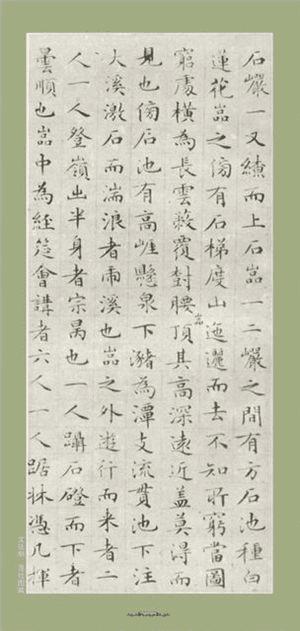 石巖一又繢而上石嵓一二巖之間有方石池種白
蓮花嵓之傍有石梯度山迤邐而去不知所窮當圖
窮處橫為長雲蔽覆樹腰嵓頂其高深遠近蓋莫得而
見也傍石池有高崕懸泉下瀦為潭支流貫池下注
大溪激石而湍浪者虎溪也嵓之外遊行而來者二
人一人登嶺出半身者宗昺也一人躡石磴而下者
曇順也嵓中為經筵會講者六人一人踞牀憑几揮